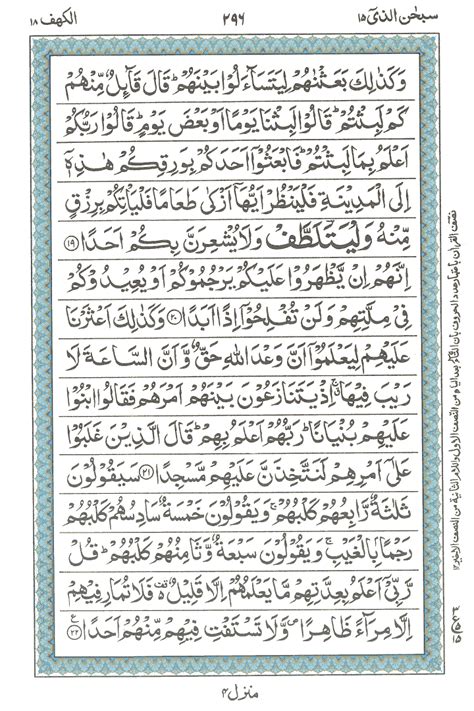 سبحٰن الذیٓ ۱۵
۲۹۶
الکهف ۱۸
وَكَذٰلِكَ بَعَثْنٰهُمْ لِيَتَسَآءَلُوْا بَيْنَهُمْ ؕ قَالَ قَآئِلٌ مِّنْهُمْ
كَمْ لَبِثْتُمْ ؕ قَالُوْا لَبِثْنَا يَوْمًا اَوْ بَعْضَ يَوْمٍ ؕ قَالُوْا رَبُّكُمْ
اَعْلَمُ بِمَا لَبِثْتُمْ ؕ فَابْعَثُوْٓا اَحَدَكُمْ بِوَرِقِكُمْ هٰذِهٖٓ
اِلَى الْمَدِيْنَةِ فَلْيَنْظُرْ اَيُّهَآ اَزْكٰى طَعَامًا فَلْيَاْتِكُمْ بِرِزْقٍ
مِّنْهُ وَلْيَتَلَطَّفْ وَلَا يُشْعِرَنَّ بِكُمْ اَحَدًا ﴿۱۹﴾
اِنَّهُمْ اِنْ يَّظْهَرُوْا عَلَيْكُمْ يَرْجُمُوْكُمْ اَوْ يُعِيْدُوْكُمْ
فِيْ مِلَّتِهِمْ وَلَنْ تُفْلِحُوْٓا اِذًا اَبَدًا ﴿۲۰﴾ وَكَذٰلِكَ اَعْثَرْنَا
عَلَيْهِمْ لِيَعْلَمُوْٓا اَنَّ وَعْدَ اللّٰهِ حَقٌّ وَّاَنَّ السَّاعَةَ لَا
رَيْبَ فِيْهَا ۚ اِذْ يَتَنَازَعُوْنَ بَيْنَهُمْ اَمْرَهُمْ فَقَالُوا ابْنُوْا
عَلَيْهِمْ بُنْيَانًا ؕ رَبُّهُمْ اَعْلَمُ بِهِمْ ؕ قَالَ الَّذِيْنَ غَلَبُوْا
عَلٰٓى اَمْرِهِمْ لَنَتَّخِذَنَّ عَلَيْهِمْ مَّسْجِدًا ﴿۲۱﴾ سَيَقُوْلُوْنَ
ثَلٰثَةٌ رَّابِعُهُمْ كَلْبُهُمْ ۚ وَيَقُوْلُوْنَ خَمْسَةٌ سَادِسُهُمْ كَلْبُهُمْ
رَجْمًۢا بِالْغَيْبِ ۚ وَيَقُوْلُوْنَ سَبْعَةٌ وَّثَامِنُهُمْ كَلْبُهُمْ ؕ قُلْ
رَّبِّيْٓ اَعْلَمُ بِعِدَّتِهِمْ مَّا يَعْلَمُهُمْ اِلَّا قَلِيْلٌ ۬ فَلَا تُمَارِ فِيْهِمْ
اِلَّا مِرَآءً ظَاهِرًا ۪ وَّلَا تَسْتَفْتِ فِيْهِمْ مِّنْهُمْ اَحَدًا ﴿۲۲﴾
منزل ۴